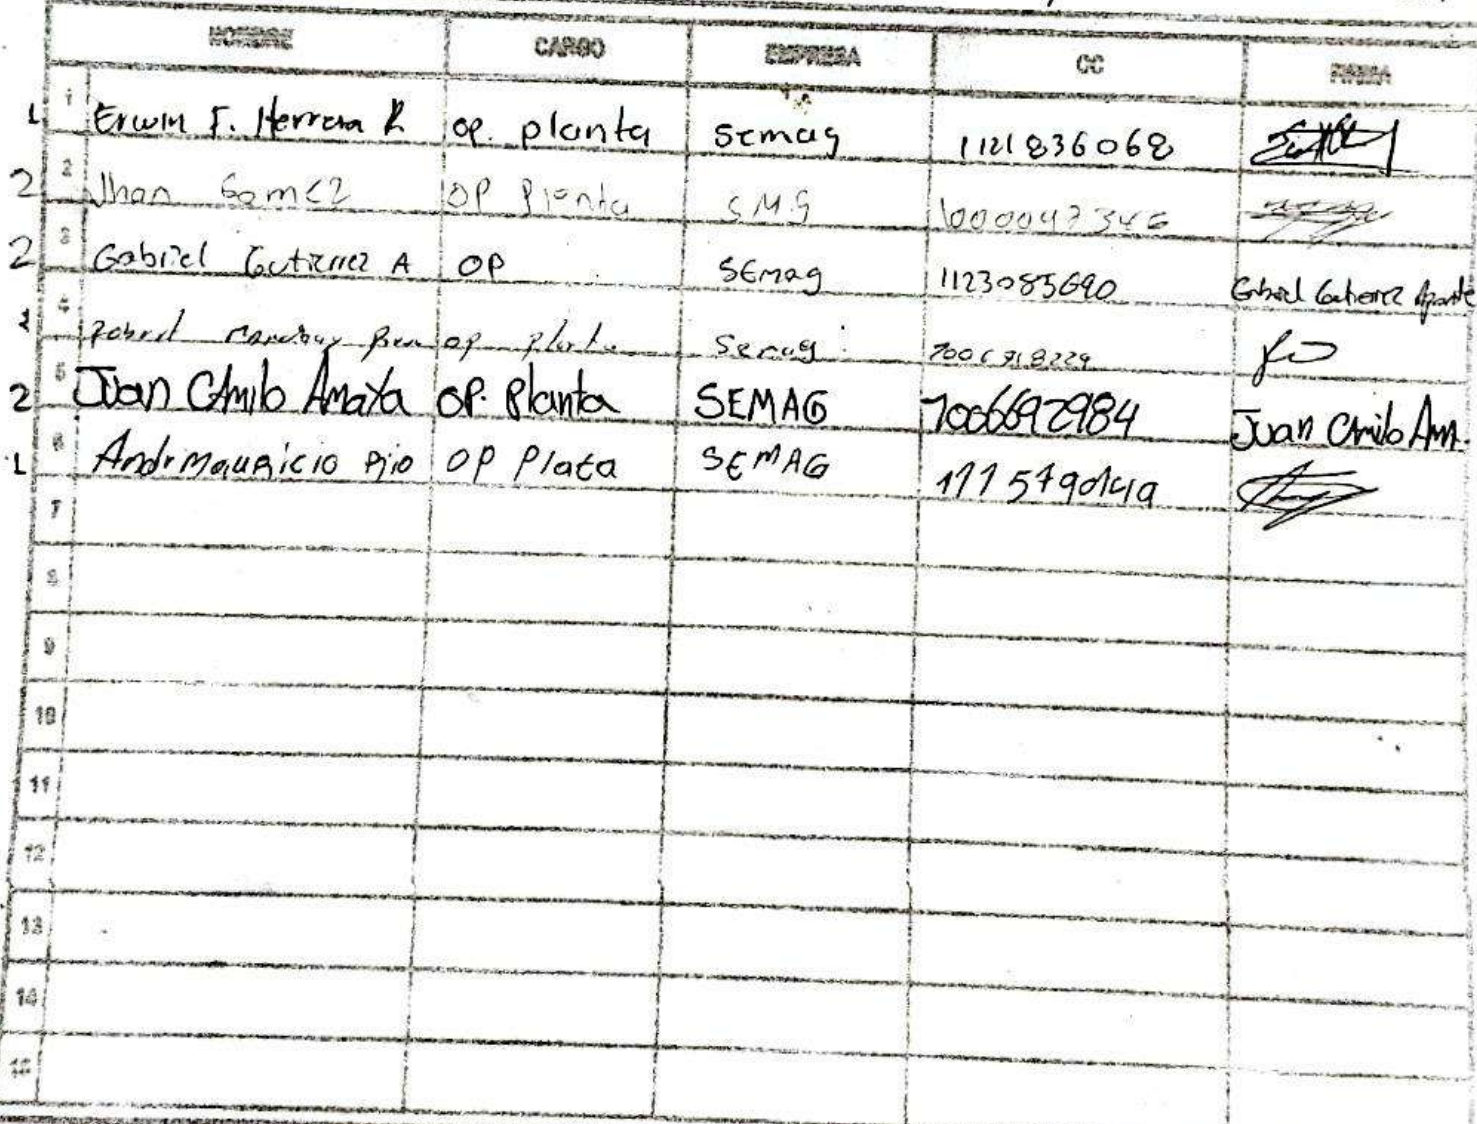 NOMBRE CARGO EMPRESA CC FIRMA
1 1 Erwin F. Herrera R op. planta semag 1121836068
2 2 Jhan Gomez OP Planta S.M.G 1000047346
2 3 Gabriel Gutierrez A OP SEmag 1123085690 Gabriel Gutierrez Aponte
1 4 op planta Semag
2 5 Juan CAmilo AmaYa OP. Planta SEMAG 1006692984 Juan CAmilo Am.
1 6 Andr mauricio Rio OP Plata SEMAG
7
8
9
10
11
12
13
14
15